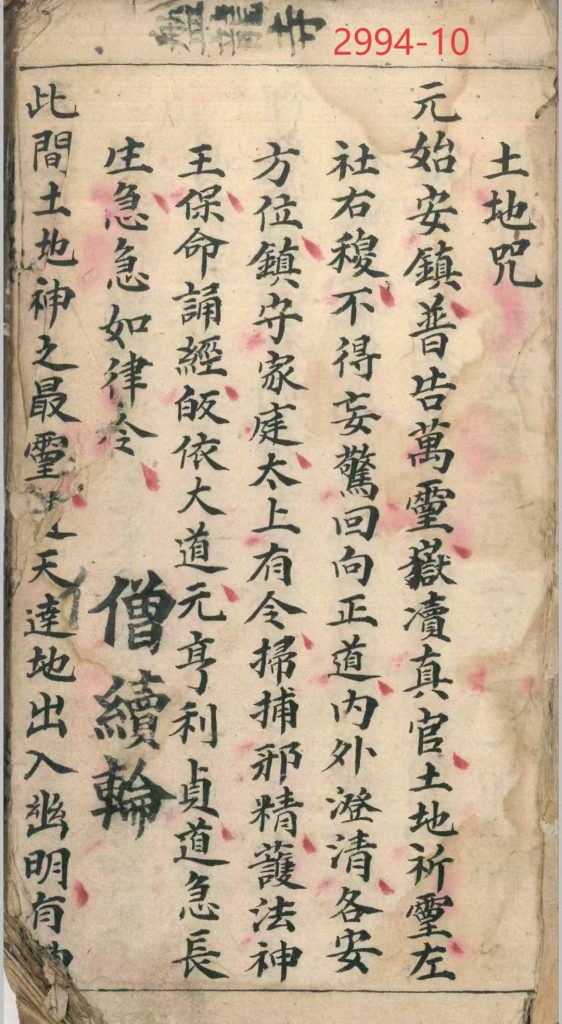 2994-10
土地咒
元始安鎮普告萬靈嶽瀆真官土地祈靈左
社右稷不得妄驚回向正道内外澄清各安
方位鎮守家庭太上有令掃捕邪精護法神
王保命誦經皈依大道元亨利貞道急長
生急急如律令
僧續輪
此間土地神之最靈天達地出入幽明有